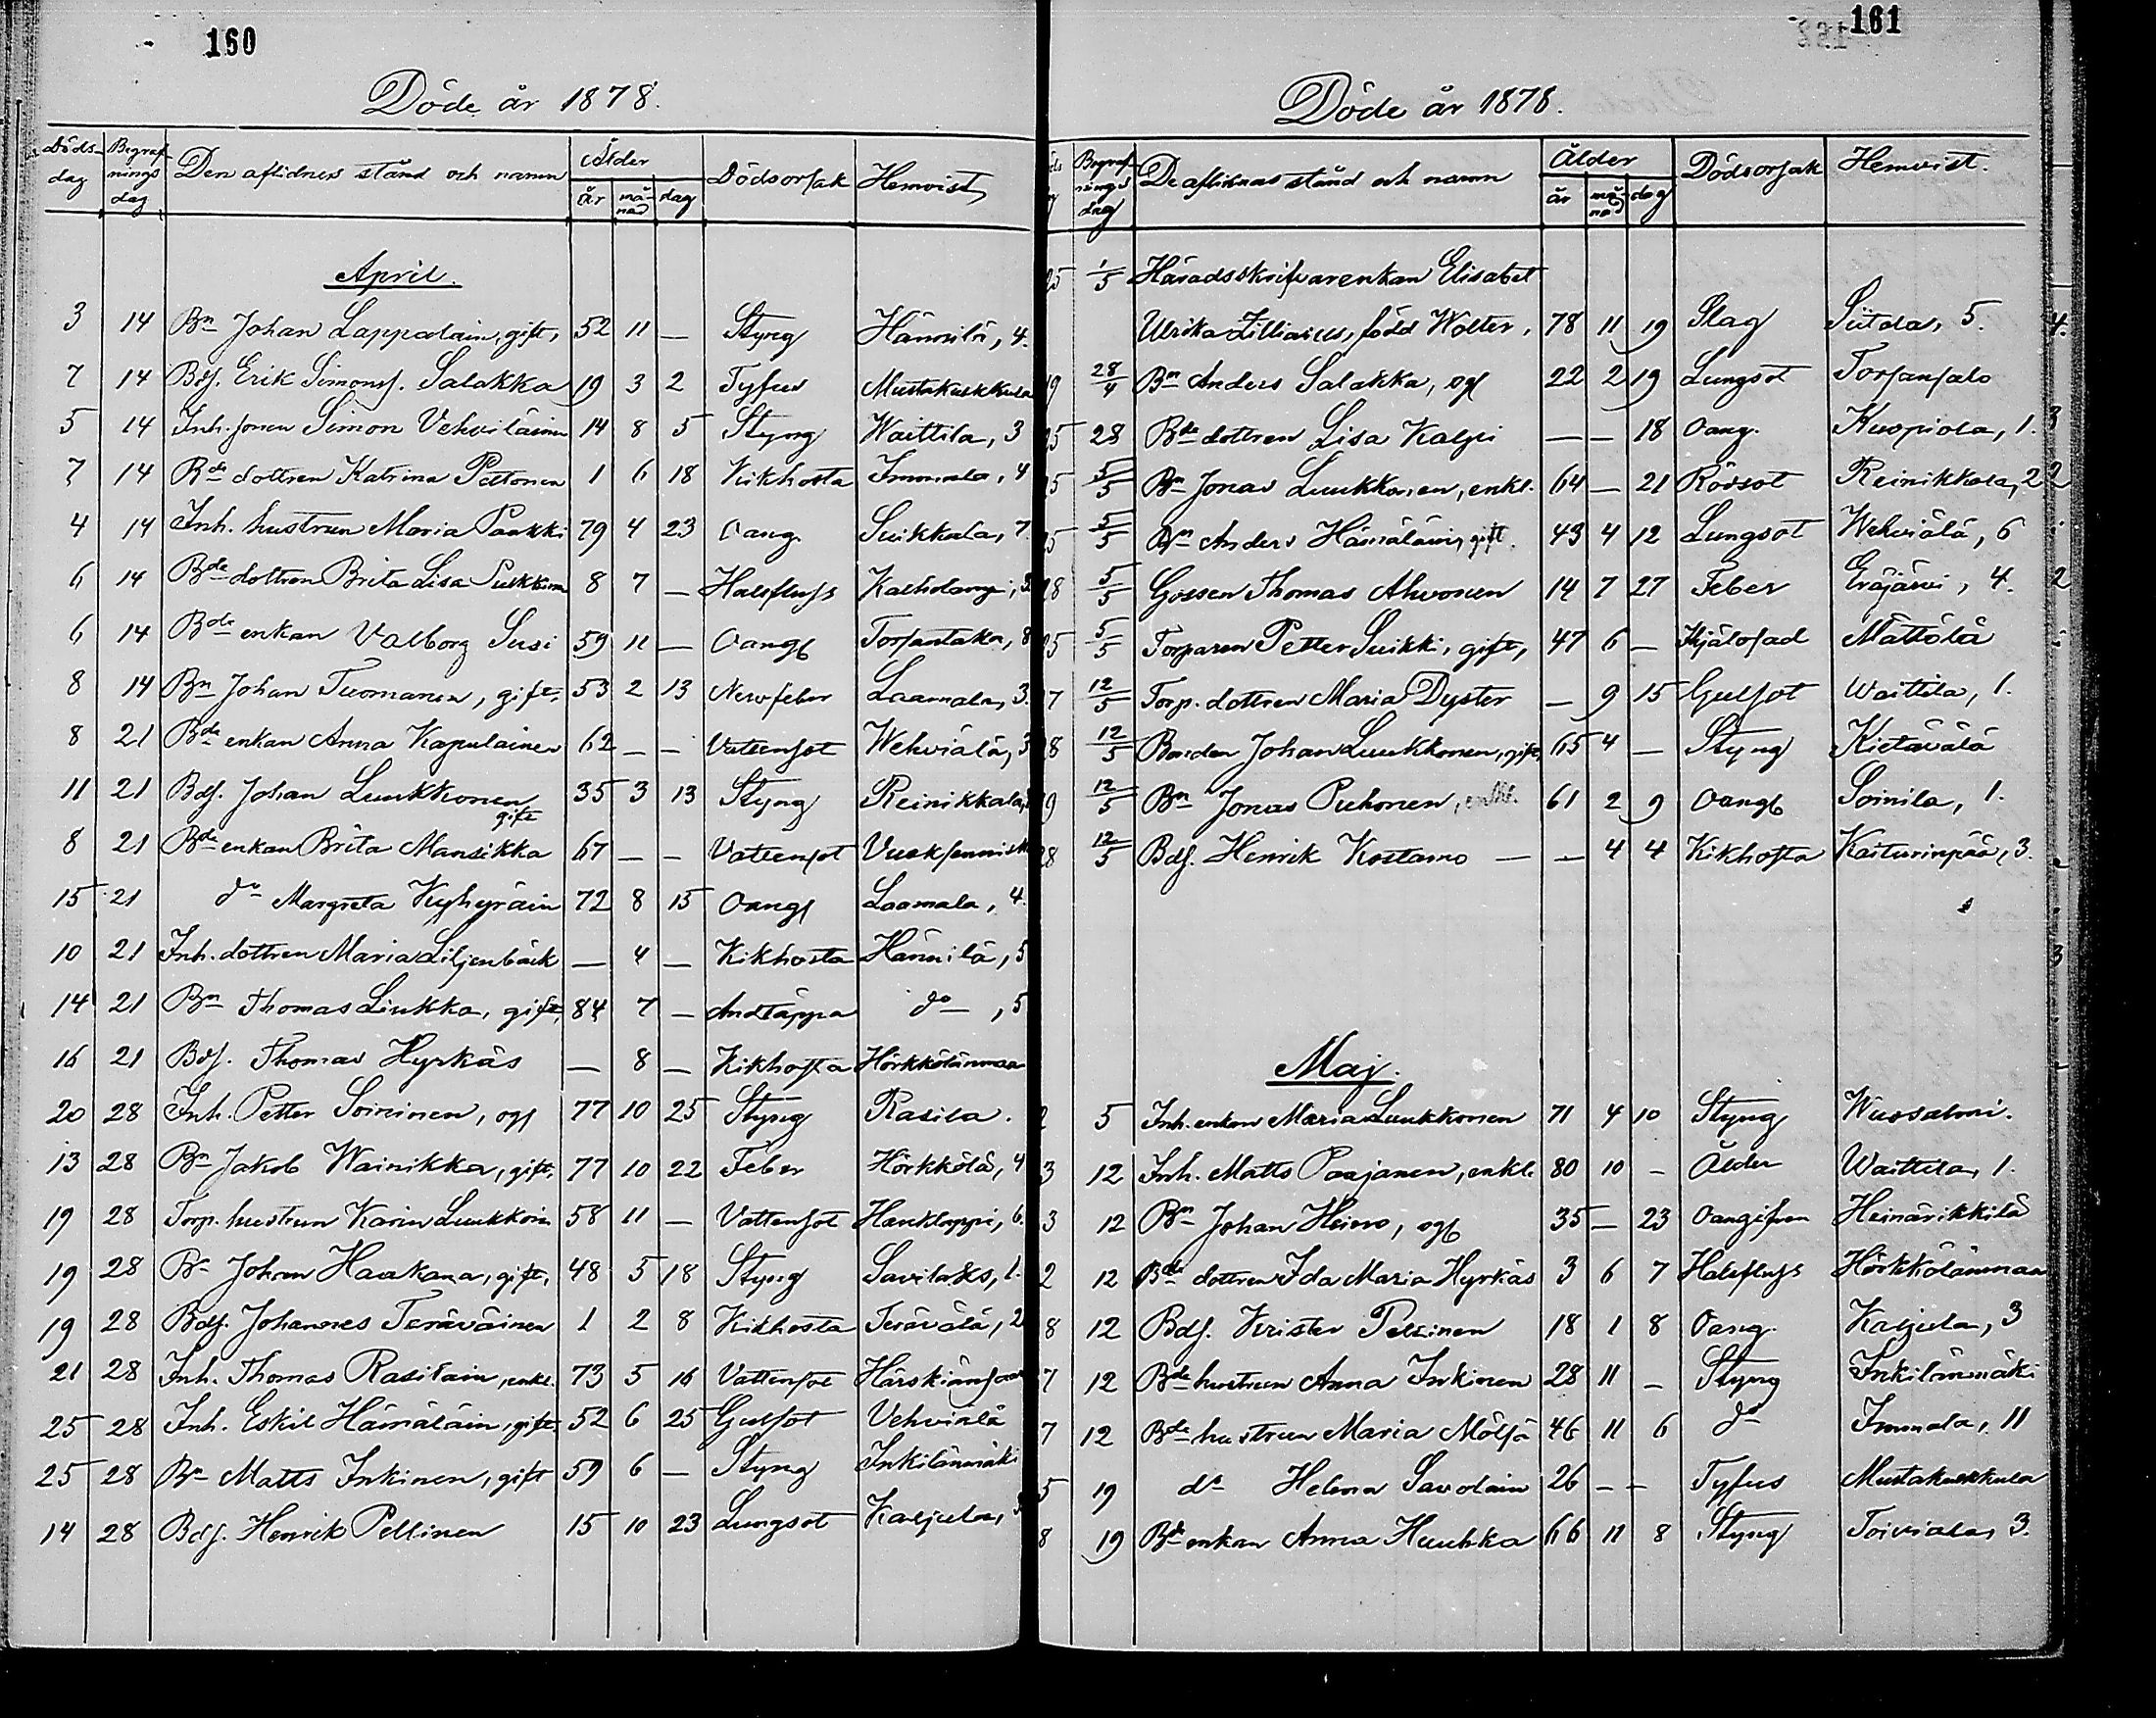 160
Döde år 1878.
Döds-dag Begraf-nings dag Den aflidnes stånd och namn Ålder år må-nad dag Dödsorsak Hemvist
April.
3 14 Bn Johan Lappalain, gift, 52 11 — Styng Hännilä, 4.
7 14 Bdſ. Erik Simonsſ. Salakka 19 3 2 Tyfus Mustakukkula
5 14 Inh. sonen Simon Vehviläinen 14 8 5 Styng Waittila, 3
7 14 Bde dottren Katrina Peltonen 1 6 18 Kikhosta Immala, 4
4 14 Inh. hustrun Maria Paukki 79 4 23 Oang. Suikkala, 7.
6 14 Bde dottren Brita Lisa Pukkin 8 7 — Halsfluss
6 14 Bde enkan Valborg Susi 59 11 — Oang Torsantaka, 8
8 14 Bn Johan Tuomanen, gift. 53 2 13 Nervfeber Laamala, 3.
8 21 Bde enkan Anna Kapulainen 62 — — Vattensot Wehviälä, 3
11 21 Bdſ. Johan Luukkonen gift 35 3 13 Styng Reinikkala,
8 21 Bde enkan Brita Mansikka 67 — — Vattensot
15 21 do Margreta Kyhyräin 72 8 15 Oang Laamala, 4.
10 21 Inh. dottren Maria Liljenbäck — 4 — Kikhosta Hännilä, 5
14 21 Bn Thomas Liukka, gift, 84 7 — Andtäppa do , 5
16 21 Bdſ. Thomas Hyrkäs — 8 — Kikhosta Hörkkölänmaa
20 28 Inh. Petter Soininen, og 77 10 25 Styng Rasila.
13 28 Bn Jakob Wainikka, gift. 77 10 22 Feber Hörkkölä, 4
19 28 Torp. hustrun Karin Luukkoin 58 11 — Vattensot Hauklappi, 6.
19 28 Bn Johan Haakana, gift, 48 5 18 Styng Savilaks, 1.
19 28 Bdſ. Johannes Teräväinen 1 2 8 Kikhosta Terävälä, 2
21 28 Inh. Thomas Rasilain, enkl. 73 5 16 Vattensot Härskiänsaari
25 28 Inh. Eskil Hämäläin, gift. 52 6 25 Gulsot Vehviälä
25 28 Bn Matts Inkinen, gift 59 6 — Styng Inkilänmäki
14 28 Bdſ. Henrik Pellinen 15 10 23 Lungsot Karjula, 3
161
Döde år 1878.
Begraf-nings dag De aflidnas stånd och namn Ålder år må-nad dag Dödsorsak Hemvist.
25 1/5 Häradsskrifvarenkan Elisabet
Ulrika Zilliacus, född Wolter, 78 11 19 Slag Siitola, 5.
19 28/4 Bn Anders Salakka, og 22 2 19 Lungsot Torsansalo
25 28 Bde dottren Lisa Kalpi — — 18 Oang. Kuopiola, 1.
25 5/5 Bn Jonas Luukkonen, enkl. 64 — 21 Rödsot Reinikkala, 2
25 5/5 Bn Anders Hämäläin, gift. 43 4 12 Lungsot Wehviälä, 6
28 5/5 Gossen Thomas Ahvonen 14 7 27 Feber Eräjärvi, 4.
25 5/5 Torparen Petter Suikki, gift, 47 6 — Ihjälosad Mättölä
27 12/5 Torp. dottren Maria Dyster — 9 15 Gulsot Waittila, 1.
28 12/5 Bonden Johan Luukkonen, gift, 65 4 — Styng Kietävälä
29 12/5 Bn Jonas Puhonen, enkl. 61 2 9 Oang Soinila, 1.
28 12/5 Bdſ. Henrik Kostamo — — 4 4 Kikhosta Kaiturinpää, 3.
Maj.
2 5 Inh. enkan Maria Luukkonen 71 4 10 Styng Wuosalmi.
3 12 Inh. Matts Paajanen, enkl. 80 10 — Ålder Waittila, 1.
3 12 Bn Johan Heimo, og 35 — 23 Oangifven Heinärikkilä
2 12 Bde dottren Ida Maria Hyrkäs 3 6 7 Halsfluss Hörkkölänmaa
8 12 Bdſ. Krister Pellinen 18 1 8 Oang. Karjula, 3
7 12 Bde hustrun Anna Inkinen 28 11 — Styng Inkilänmäki
7 12 Bde hustrun Maria Mölsä 46 11 6 do Immala, 11
5 19 do Helena Savolain 26 — — Tyfus Mustakukkula
8 19 Bde enkan Anna Huuhka 66 11 8 Styng Toiviala, 3.